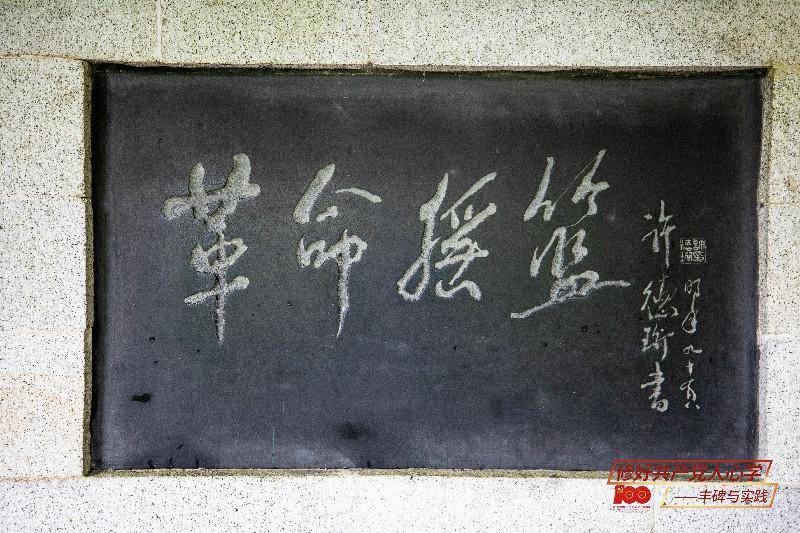 革命摇篮
许德珩书
时年九十有八
修好共产党人心学
100
——丰碑与实践